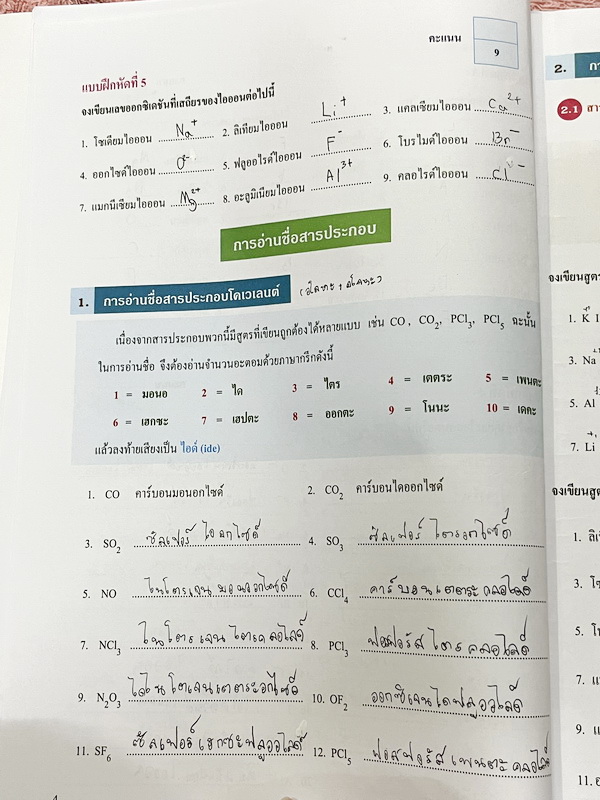 คะแนน
9
แบบฝึกหัดที่ 5
จงเขียนเลขออกซิเดชันที่เสถียรของไอออนต่อไปนี้
1. โซเดียมไอออน Na+ 2. ลิเทียมไอออน Li+ 3. แคลเซียมไอออน Ca2+
4. ออกไซด์ไอออน 5. ฟลูออไรด์ไอออน F- 6. โบรไมด์ไอออน Br-
7. แมกนีเซียมไอออน Mg2+ 8. อะลูมิเนียมไอออน Al3+ 9. คลอไรด์ไอออน Cl-
การอ่านชื่อสารประกอบ
1. การอ่านชื่อสารประกอบโคเวเลนต์
เนื่องจากสารประกอบพวกนี้มีสูตรที่เขียนถูกต้องได้หลายแบบ เช่น CO, CO2, PCl3, PCl5 ฉะนั้น
ในการอ่านชื่อ จึงต้องอ่านจำนวนอะตอมด้วยภาษากรีกดังนี้
1 = มอนอ 2 = ได 3 = ไตร 4 = เตตระ 5 = เพนตะ
6 = เฮกซะ 7 = เฮปตะ 8 = ออกตะ 9 = โนนะ 10 = เดคะ
แล้วลงท้ายเสียงเป็น ไอด์ (ide)
1. CO คาร์บอนมอนอกไซด์ 2. CO2 คาร์บอนไดออกไซด์
3. SO2 ซัลเฟอร์ ไดออกไซด์ 4. SO3 ซัลเฟอร์ ไตรออกไซด์
5. NO ไนโตรเจน มอนอกไซด์ 6. CCl4 คาร์บอน เตตระ คลอไรด์
7. NCl3 ไนโตรเจน ไตรคลอไรด์ 8. PCl3 ฟอสฟอรัส ไตร คลอไรด์
9. N2O3 10. OF2 ออกซิเจน ไดฟลูออไรด์
11. SF6 ซัลเฟอร์ เฮกซะฟลูออไรด์ 12. PCl5 ฟอสฟอรัส เพนตะ คลอไรด์
2.
2.1 สา
จงเขียนสูตร
1. K
3. Na
5. Al
7. Li
จงเขียนสูตร
1. ลิเ
3. โซ
5. โบ
7. แม
9. แ
11.